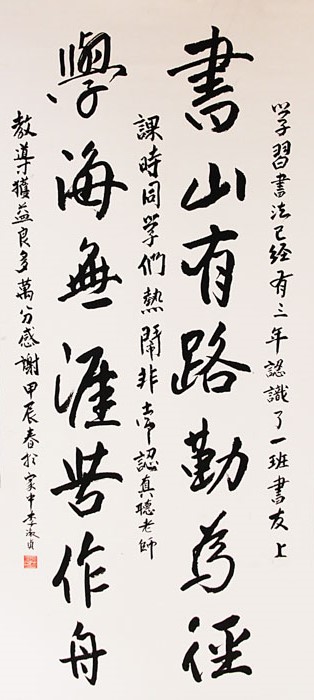 學習書法已经有三年認識了一班書友上
書山有路勤為徑
課時同學們熱鬧非常認真聽老師
學海無涯苦作舟
教導獲益良多萬分感謝甲辰春於家中李淑貞